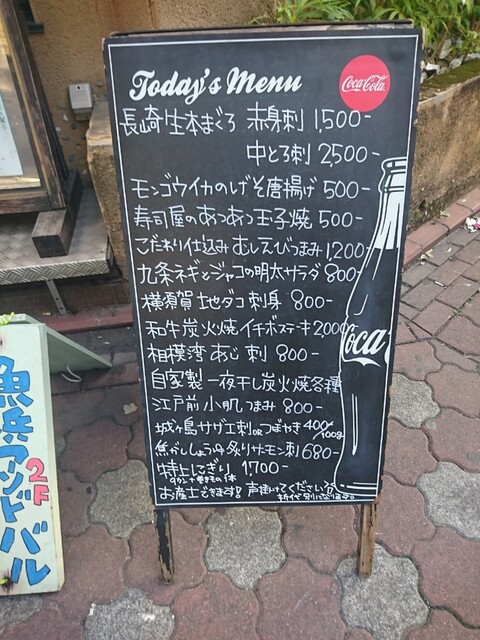 Today's Menu
Coca-Cola
長崎生本まぐろ 赤身刺 1,500-
中とろ刺 2,500-
モンゴウイカのげそ唐揚げ 500-
寿司屋のあつあつ玉子焼 500-
こだわり仕込みむしえびつまみ 1,200-
九条ネギとジャコの明太サラダ 800-
横須賀 地ダコ刺身 800-
和牛炭火焼イチボステーキ 2000
相模湾 あじ刺 800-
自家製 一夜干し炭火焼各種
江戸前 小肌つまみ 800-
城ヶ島サザエ刺orつぼやき 400/100g
焦がししょうゆ炙りサーモン刺 680-
特上にぎり 1,700-
お産土できます! 声掛けてください
Coca
魚浜アンドバル
2F